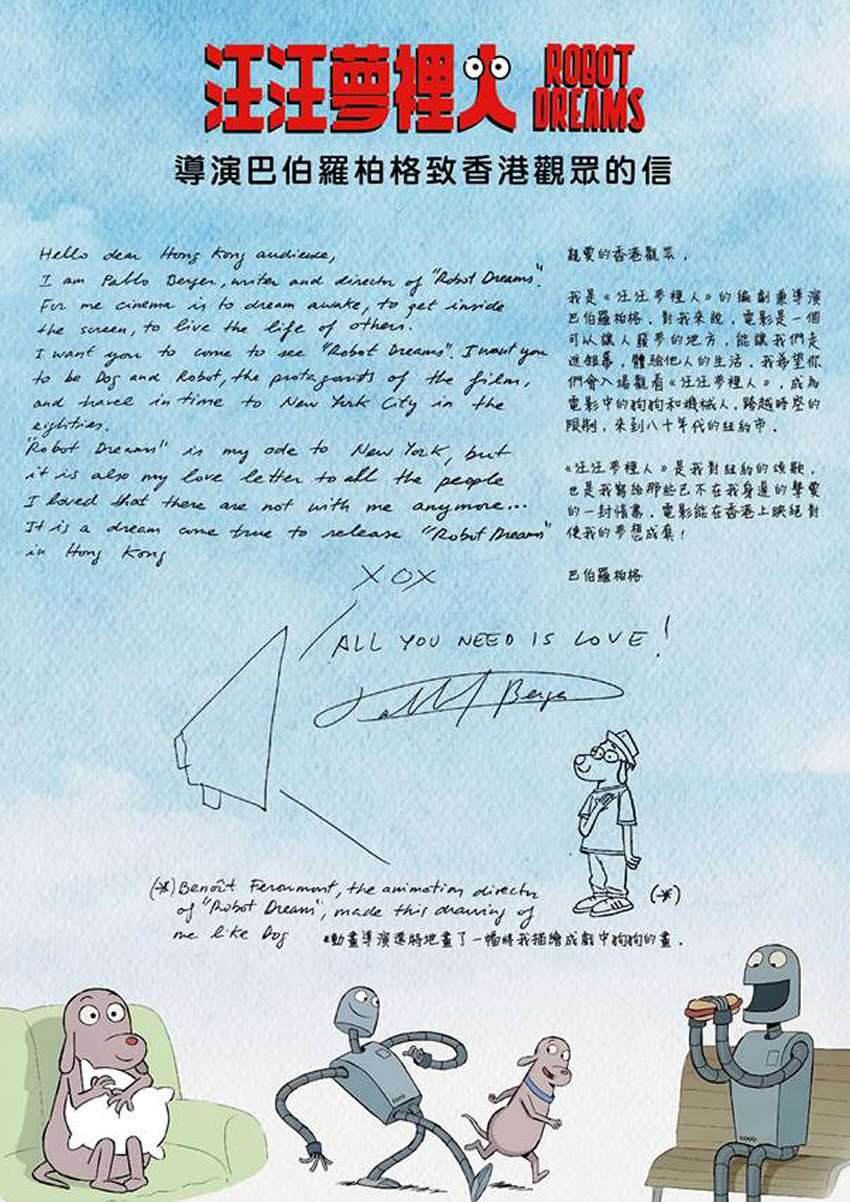 汪汪夢裡人
ROBOT
DREAMS
導演巴伯羅柏格致香港觀眾的信
Hello dear Hong Kong audience,
I am Pablo Berger, writer and director of "Robot Dreams".
For me cinema is to dream awake, to get inside
the screen, to live the life of others.
I want you to come to see "Robot Dreams". I want you
to be Dog and Robot, the protagonists of the film,
and travel in time to New York City in the
eighties.
"Robot Dreams" is my ode to New York, but
it is also my love letter to all the people
I loved that there are not with me anymore...
It is a dream come true to release "Robot Dreams"
in Hong Kong
XOX
親愛的香港觀眾，
我是《汪汪夢裡人》的編劇兼導演
巴伯羅柏格．對我來說，電影是一個
可以讓人發夢的地方，能讓我們走
進銀幕，體驗他人的生活．我希望你
們會入場觀看《汪汪夢裡人》，成為
電影中的狗狗和機械人，跨越時空的
限制，來到八十年代的紐約市．
《汪汪夢裡人》是我對紐約的頌歌，
也是我寫給那些已不在我身邊的摯愛
的一封情書．電影能在香港上映絕對
使我的夢想成真！
巴伯羅柏格
ALL YOU NEED IS LOVE!
Pablo Berger
(*)
(*) Benoît Feroumont, the animation director
of "Robot Dreams", made this drawing of
me like Dog
*動畫導演還特地畫了一幅將我描繪成戲中狗狗的畫．